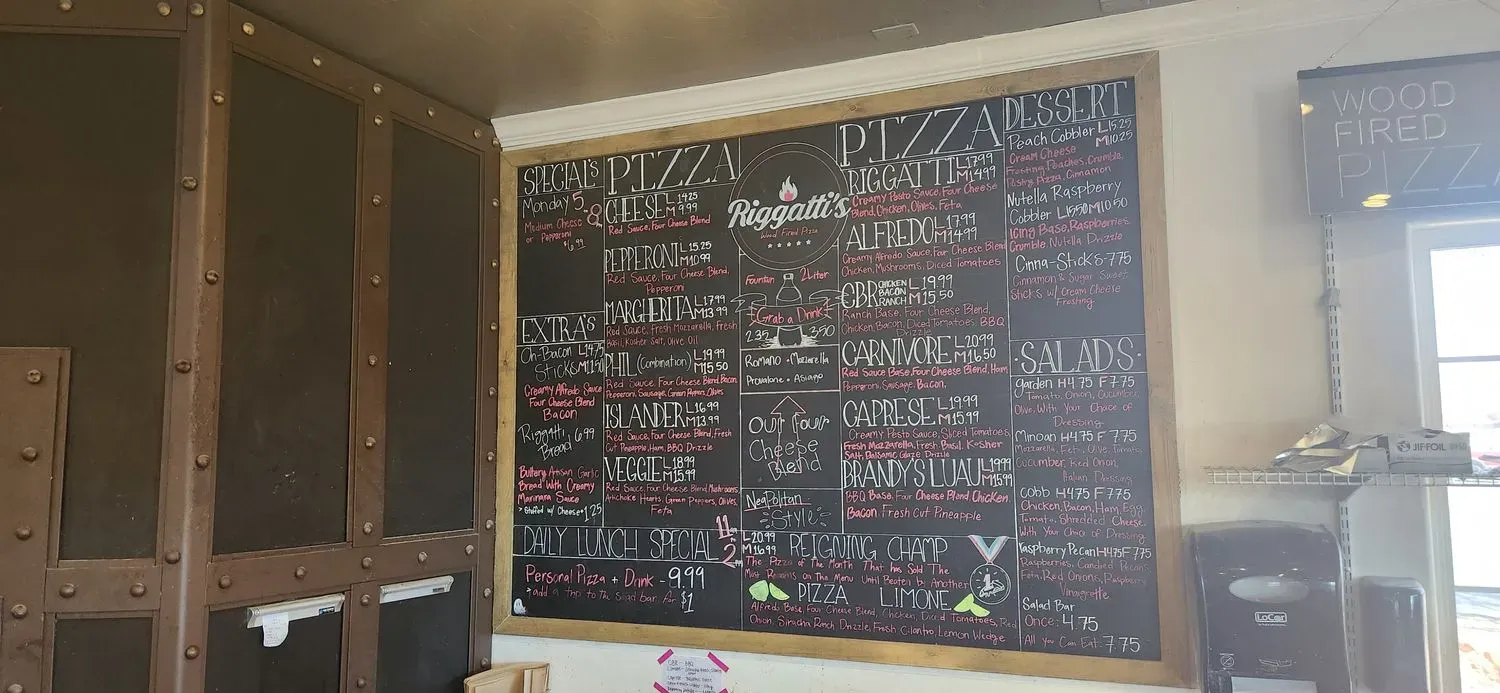 SPECIAL'S
Monday 5-8
Medium Cheese
or Pepperoni
$6.99
EXTRA'S
Oh-Bacon L14.75
Sticks M11.50
Creamy Alfredo Sauce
Four Cheese Blend
Bacon
Riggatti 6.99
Bread
Buttery Artisan Garlic
Bread With Creamy
Marinara Sauce
> Stuffed w/ Cheese + 1.25
PIZZA
CHEESE L 14.25
M 9.99
Red Sauce, Four Cheese Blend
PEPPERONI L 15.25
M 10.99
Red Sauce, Four Cheese Blend,
Pepperoni
MARGHERITA L 17.99
M 13.99
Red Sauce, Fresh Mozzarella, Fresh
Basil, Kosher Salt, Olive Oil
PHIL (Combination) L 19.99
M 15.50
Red Sauce, Four Cheese Blend, Bacon
Pepperoni, Sausage, Green Peppers, Olives
ISLANDER L 16.99
M 13.99
Red Sauce, Four Cheese Blend, Fresh
Cut Pineapple, Ham, BBQ Drizzle
VEGGIE L 18.99
M 15.99
Red Sauce, Four Cheese Blend, Mushrooms,
Artichoke Hearts, Green Peppers, Olives,
Feta
Riggatti's
Wood Fired Pizza
Fountain 2 Liter
Grab a Drink
2.35 3.50
Romano • Mozzarella
Provalone • Asiago
our four
Cheese
Blend
Neapolitan
Style
PIZZA
RIGGATTI L 17.99
M 14.99
Creamy Pesto Sauce, Four Cheese
Blend, Chicken, Olives, Feta
ALFREDO L 17.99
M 14.99
Creamy Alfredo Sauce, Four Cheese Blend
Chicken, Mushrooms, Diced Tomatoes
CBR CHICKEN BACON RANCH L 19.99
M 15.50
Ranch Base, Four Cheese Blend,
Chicken, Bacon, Diced Tomatoes, BBQ
Drizzle
CARNIVORE L 20.99
M 16.50
Red Sauce Base, Four Cheese Blend, Ham
Pepperoni, Sausage, Bacon,
CAPRESE L 19.99
M 15.99
Creamy Pesto Sauce, Sliced Tomatoes
Fresh Mozzarella, Fresh Basil, Kosher
Salt, Balsamic Glaze Drizzle
BRANDY'S LUAU L 19.99
M 15.99
BBQ Base, Four Cheese Blend, Chicken,
Bacon, Fresh Cut Pineapple
DESSERT
Peach Cobbler L 15.25
M 10.25
Cream Cheese
Frosting, Peaches, Crumble,
Cinnamon
Nutella Raspberry
Cobbler L 15.50 M 10.50
Icing Base, Raspberries,
Crumble Nutella Drizzle
Cinna-Sticks-7.75
Cinnamon & Sugar Sweet
Sticks w/ Cream Cheese
Frosting
• SALADS •
garden H 4.75 F 7.75
Tomato, Onion, Cucumber,
Olive, With Your Choice of
Dressing
Minoan H 4.75 F 7.75
Mozzarella, Feta, Olive, Tomato,
Cucumber, Red Onion,
Italian Dressing
Cobb H 4.75 F 7.75
Chicken, Bacon, Ham, Egg
Tomato, Shredded Cheese,
With Your Choice of Dressing
Raspberry Pecan H 4.75 F 7.75
Raspberries, Candied Pecans
Feta, Red Onions, Raspberry
Vinaigrette
Salad Bar
Once: 4.75
All You Can Eat: 7.75
DAILY LUNCH SPECIAL 11-2
Personal Pizza + Drink - 9.99
> add a trip to the salad bar for $1
L 20.99
M 16.99 REIGNING CHAMP
The Pizza of The Month That has Sold The
Most Remains on The Menu Until Beaten by Another
PIZZA LIMONE
Alfredo Base, Four Cheese Blend, Chicken, Diced Tomatoes, Red
Onion, Siracha Ranch Drizzle, Fresh Cilantro, Lemon Wedge
1
WOOD
FIRED
PIZZA
JIF-FOIL
LoCor